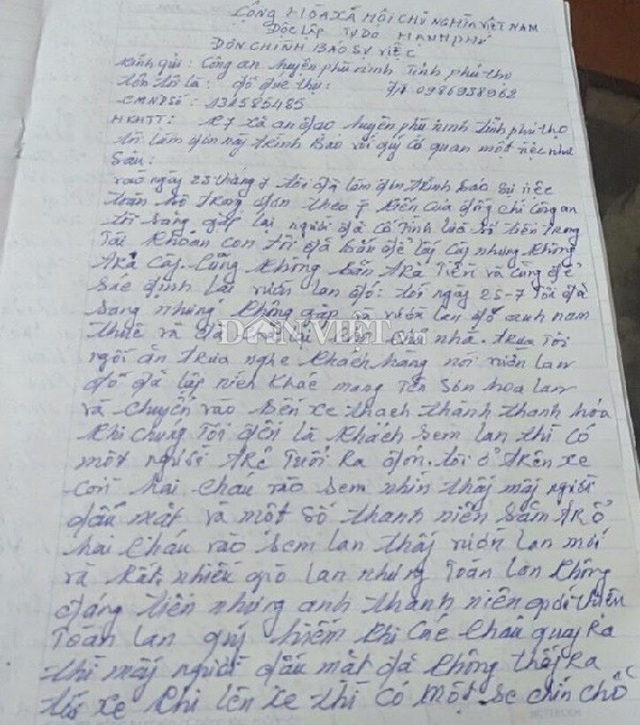 CỘNG HÒA XÃ HỘI CHỦ NGHĨA VIỆT NAM
Độc lập Tự Do Hạnh phú
ĐƠN CHÌNH BÁO SỰ VIỆC
Kính gửi: Công an huyện phù ninh Tỉnh phú thọ
tên tôi là: đỗ đức thu: 0986938962
CMND Số: 131585485
HKHTT: K7 xã an đạo huyện phù ninh tỉnh phú thọ
tôi làm đơn này trình báo với quý cơ quan một việc như
Sau:
vào ngày 23 tháng 7 tôi đã làm đơn trình báo sự việc
toàn bộ trong đơn theo ý kiến của đồng chí công an
tôi sang gặp lại người đã cố tình lừa số tiền trong
Tài khoản con tôi đã bắn để lấy cây nhưng không
tRả cây. Cũng không bắn tRả Tiền và cũng để
sác định lại vườn lan đó: tôi ngày 25-7 Tôi đã
sang nhưng không gặp và vườn lan đó anh nam
thuê và đã chủ nhà. trưa Tôi
ngồi ăn trưa nghe khách hàng nói vườn lan
đó đã lập ních khác mang Tên Sơn hoa lan
và chuyển vào bến xe thạch thành thanh hóa
khi chúng Tôi đến là khách sem lan thì có
một người tRẻ Tuổi Ra đón. tôi ở tRên xe
còn hai cháu vào sem nhìn thấy mấy người
dấu mặt và một số thanh niên săm tRổ
hai cháu vào sem lan thấy vườn lan mới
và Rất nhiều giò lan nhưng Toàn lan không
đáng tiền nhưng anh thanh niên giới thiệu
Toàn lan quý hiếm khi các cháu quay Ra
thì mấy người dấu mặt đã không thấy Ra
tới xe khi lên xe thì có một se chín chỗ
DANVIET.vn